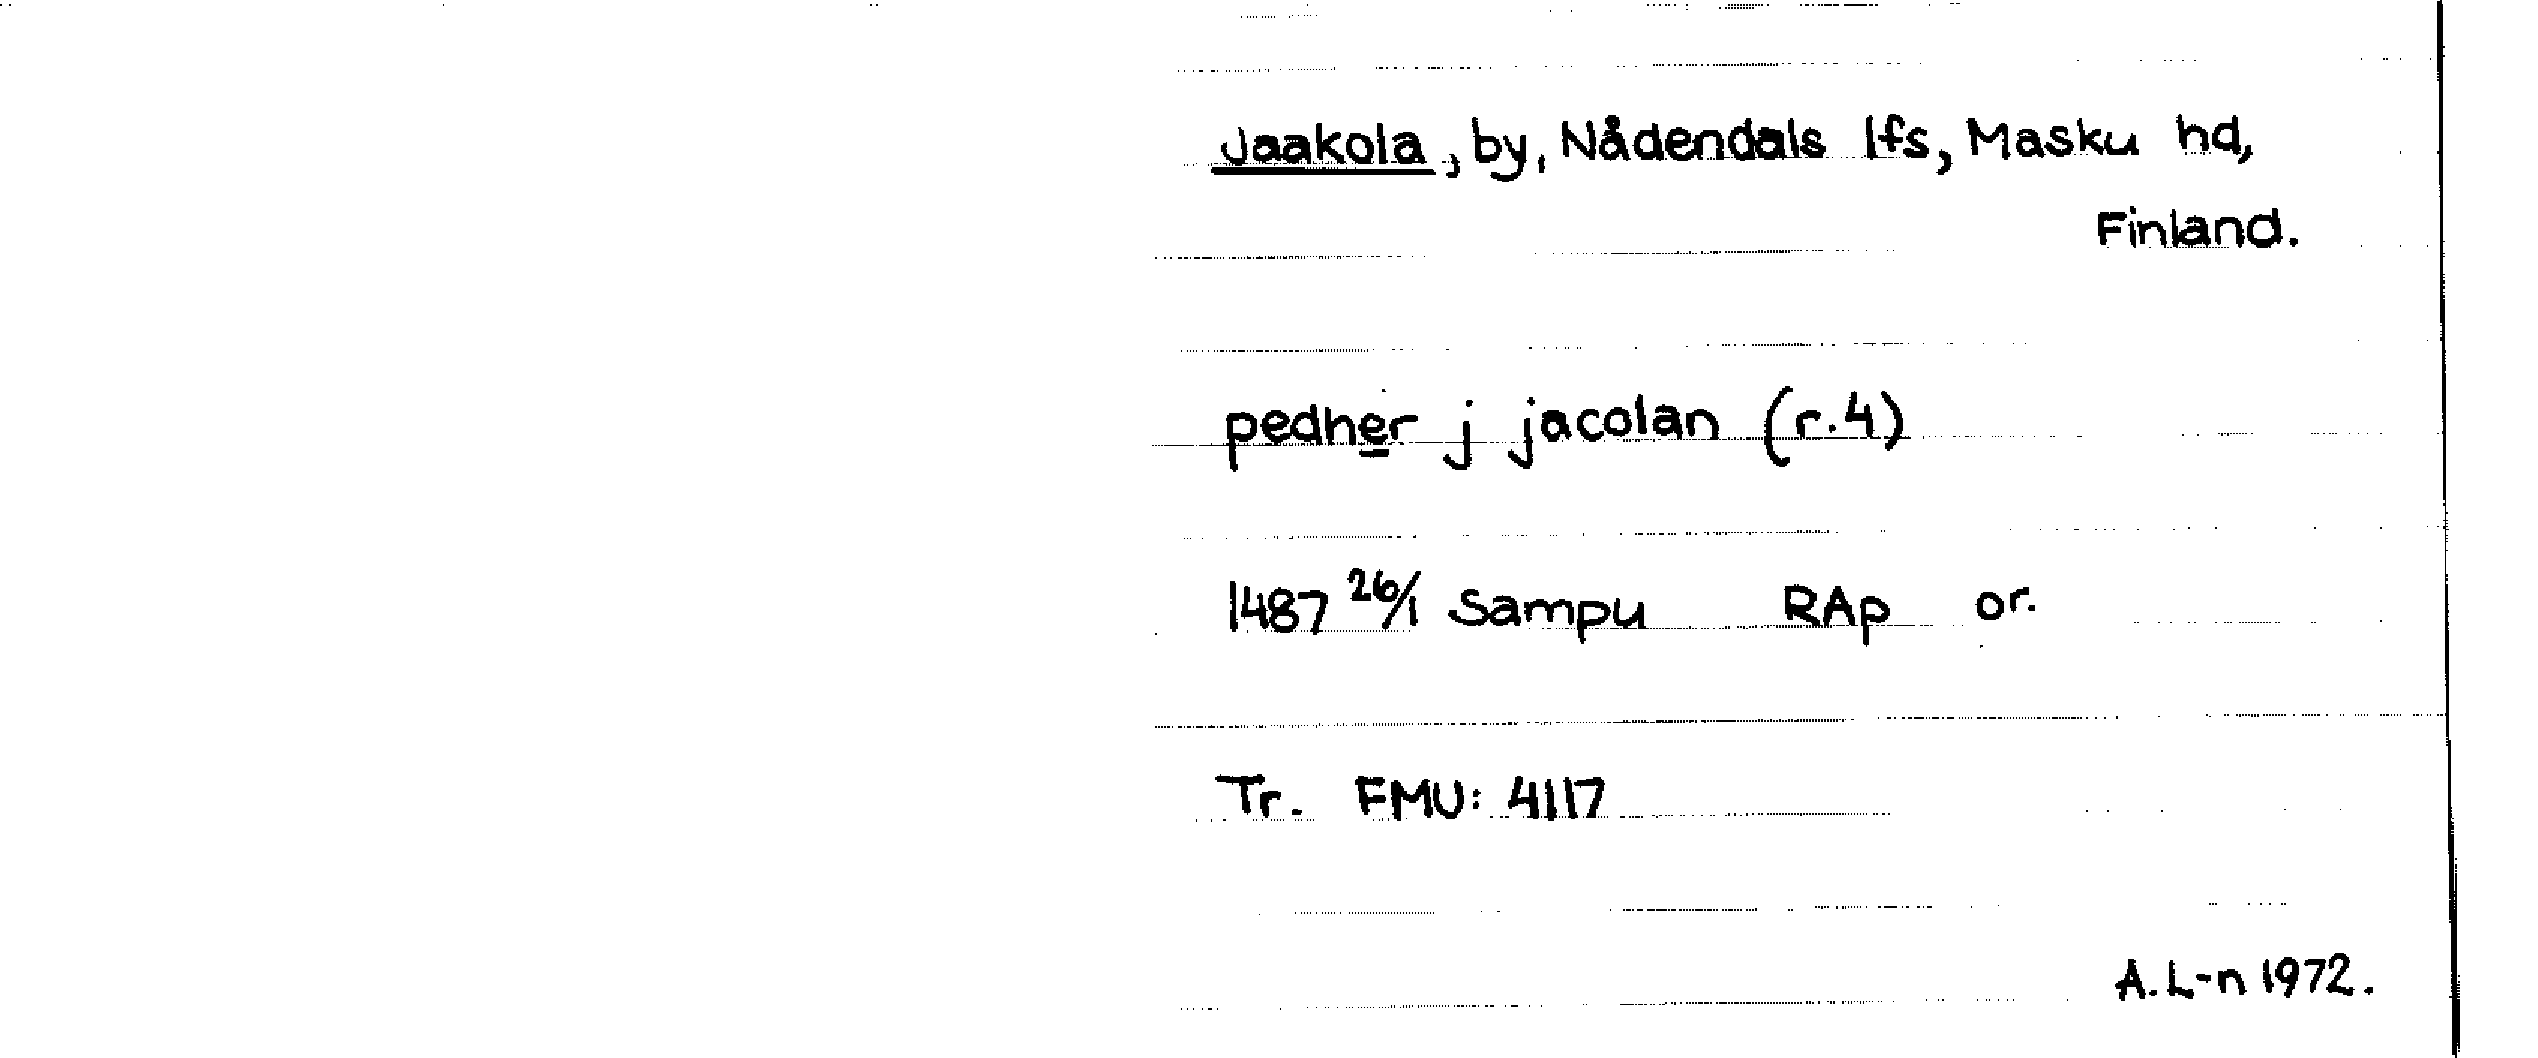 Jaakola, by, Nådendals lfs, Masku hd,
Finland.
pedher j jacolan (r.4)
1487 26/1 Sampu RAp or.
Tr. FMU: 4117
A. L-n 1972.